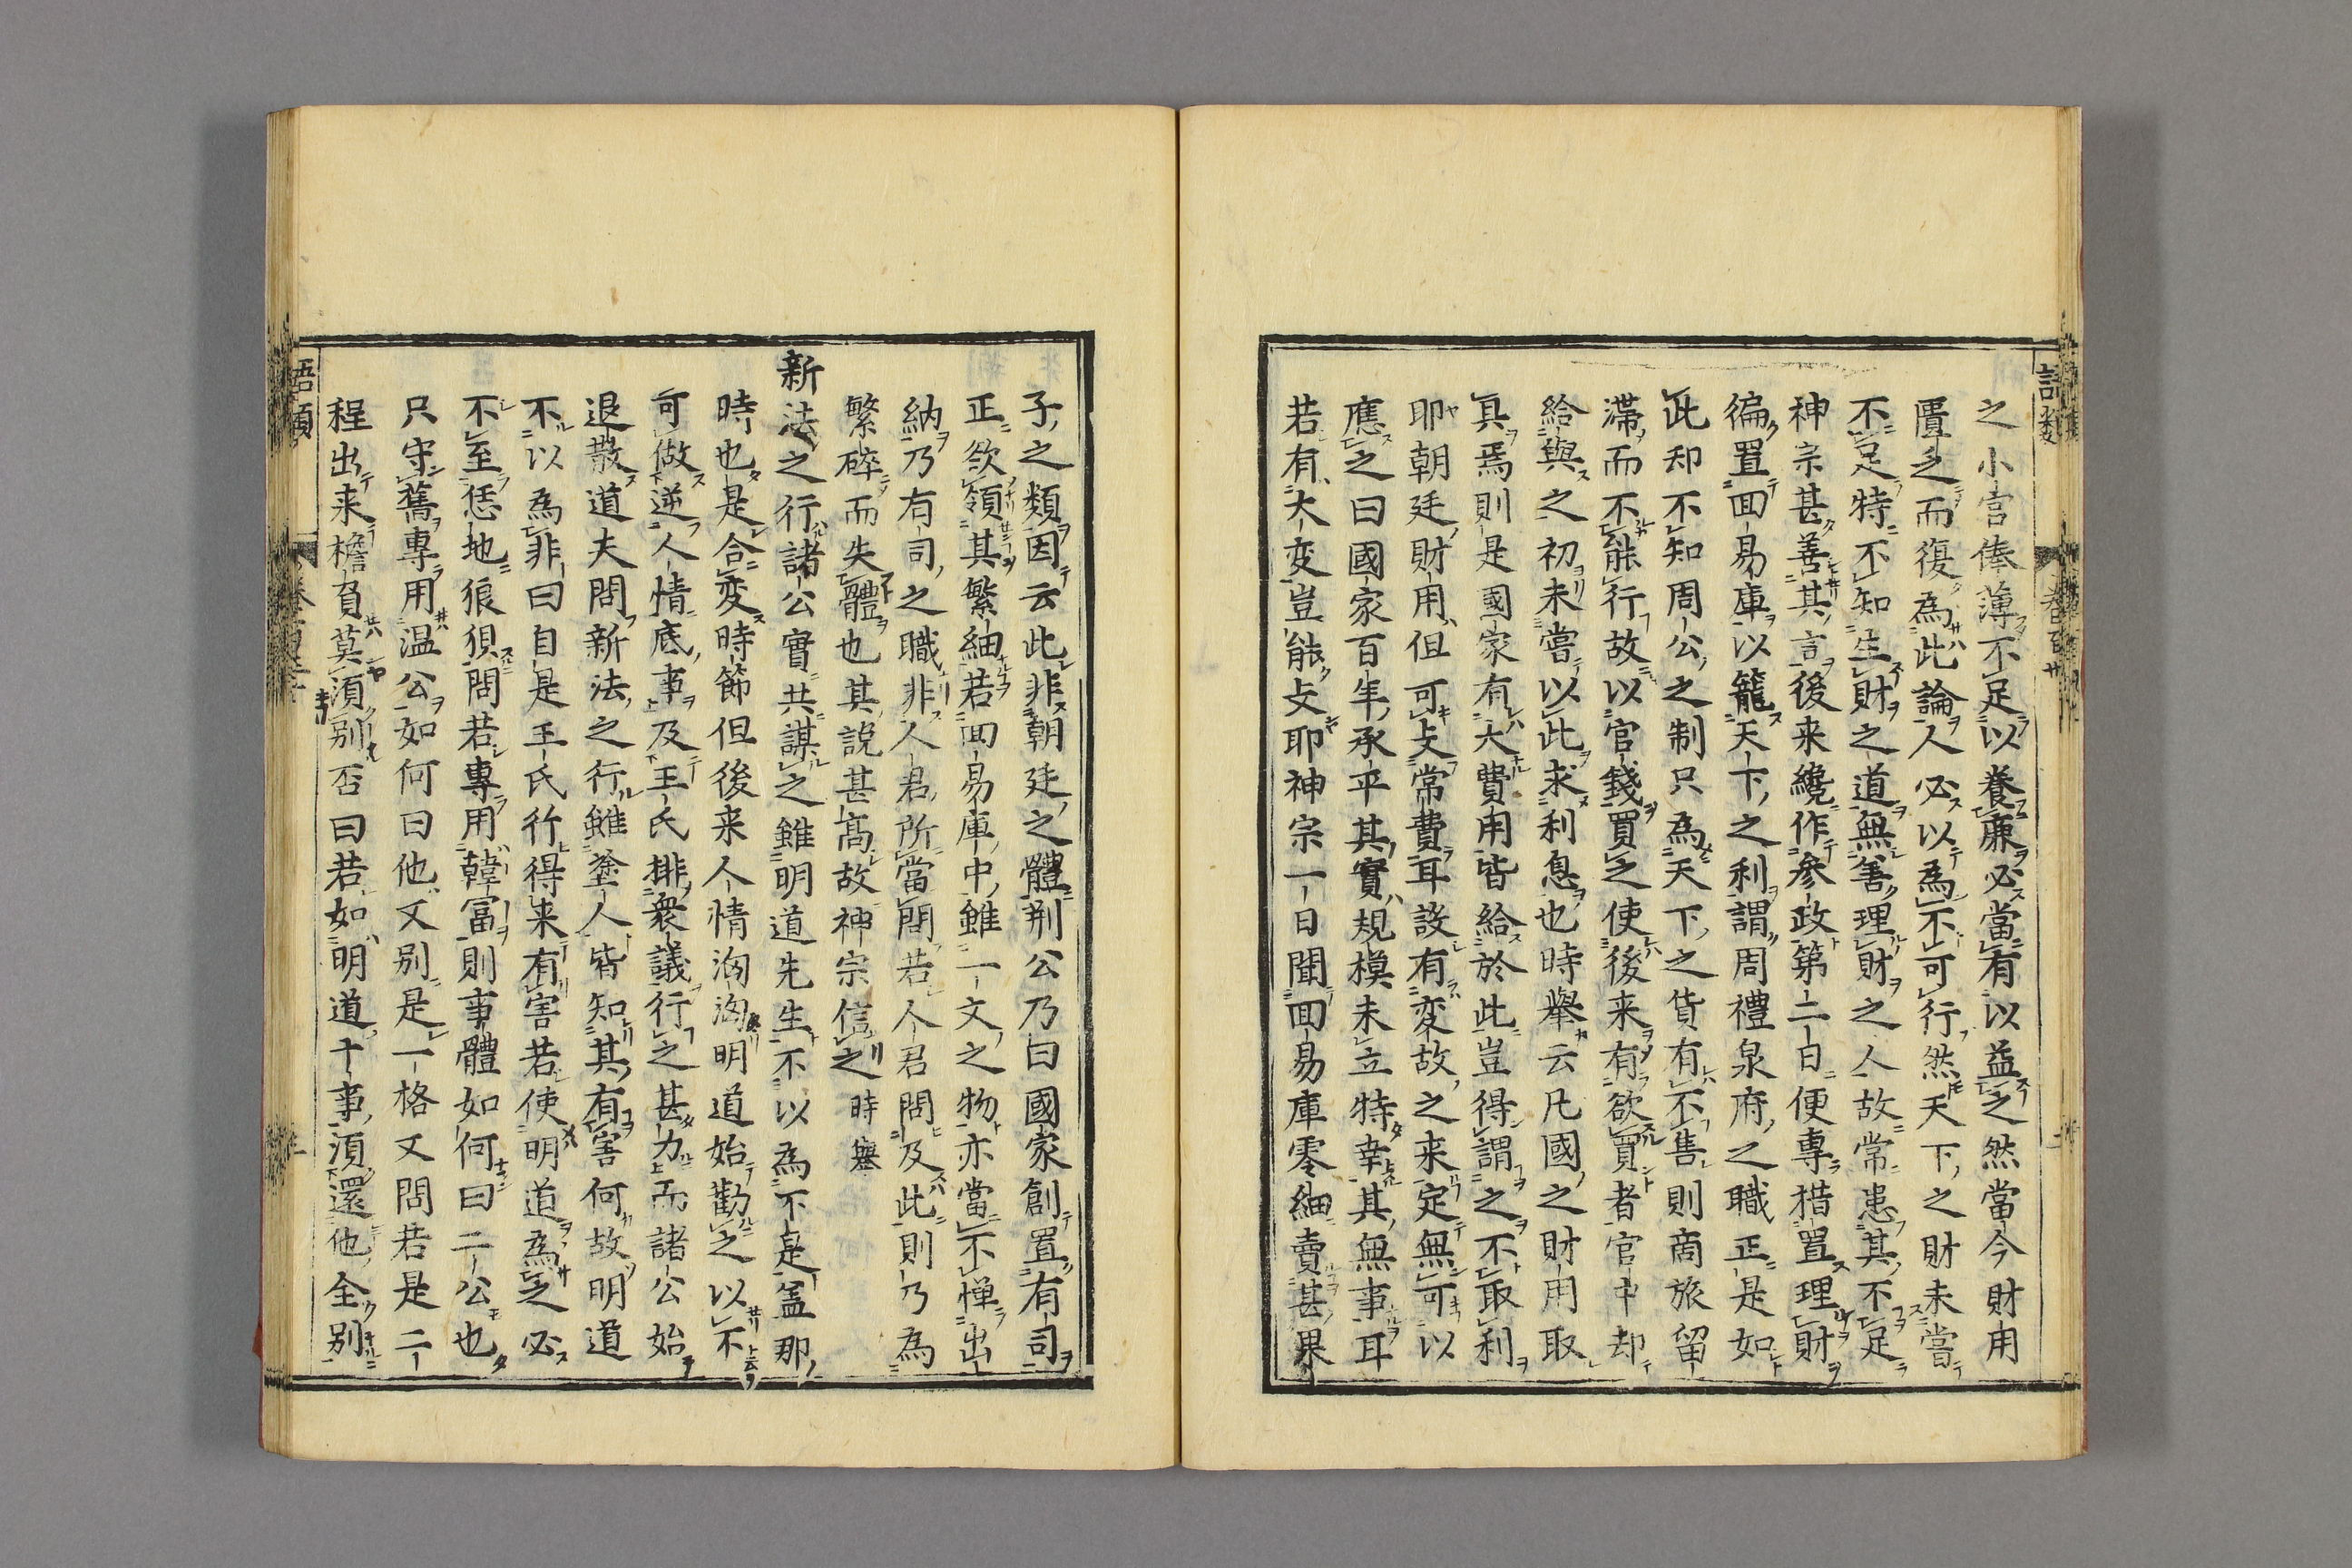 之小官俸薄不足以養廉必當有以益之然當今財用
匱乏而復為此論人必以為不可行然天下之財未嘗
不足特不知生財之道無善理財之人故常患其不足
神宗甚善其言後来纔作參政第二日便專措置理財
徧置回易庫以籠天下之利謂周禮泉府之職正是如
此却不知周公之制只為天下之貨有不售則商旅留
滯而不能行故以官錢買之使後来有欲買者官中却
給與之初未嘗以此求利息也時舉云凡國之財用取
具焉則是國家有大費用皆給於此豈得謂之不取利
耶朝廷財用但可支常費耳設有変故之来定無可以
應之曰國家百年承平其實規模未立特幸其無事耳
若有大変豈能支耶神宗一日聞回易庫零細賣甚果
子之類因云此非朝廷之體荆公乃曰國家創置有司
正欲領其繁細若回易庫中雖一文之物亦當不憚出
納乃有司之職非人君所當問若人君問及此則乃為
繁碎而失體也其説甚髙故神宗信之 時舉
新法之行諸公實共謀之雖明道先生不以為不是盖那
時也是合変時節但後来人情洶洶明道始勸之以不
可做逆人情底事及王氏排衆議行之甚力而諸公始
退散道夫問新法之行雖塗人皆知其有害何故明道
不以為非曰自是王氏行得来有害若使明道為之必
不至恁地狼狽問若專用韓富則事體如何曰二公也
只守舊專用温公如何曰他又别是一格又問若是二
程出来檐負莫須别否曰若如明道十事須還他全别